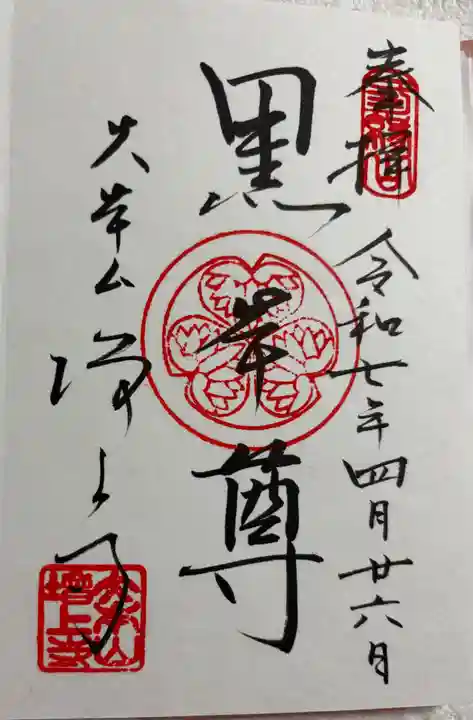 奉拝
令和七年四月廿六日
黒本尊
大本山
増上寺
大本山
増上寺